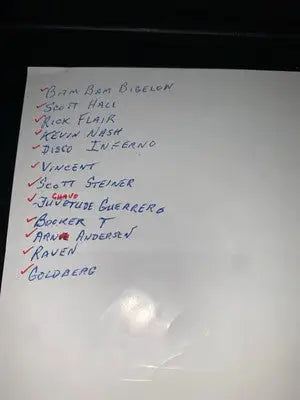 ✓BAM BAM BIGELOW
✓SCOTT HALL
✓RICK FLAIR
✓KEVIN NASH
✓DISCO INFERNO
✓VINCENT
✓SCOTT STEINER
CHAVO
✓JUVETUDE GUERRERO
✓BOOKER T
✓ARNE ANDERSEN
✓RAVEN
✓GOLDBERG